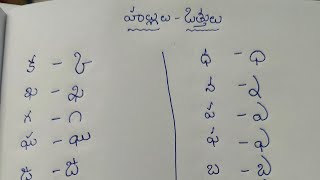 హల్లులు - ఒత్తులు
క - ్క
ఖ - ్ఖ
గ - ్గ
ఘ - ్ఘ
ధ - ్ధ
న - ్న
ప - ్ప
ఫ - ్ఫ
బ - ్బ